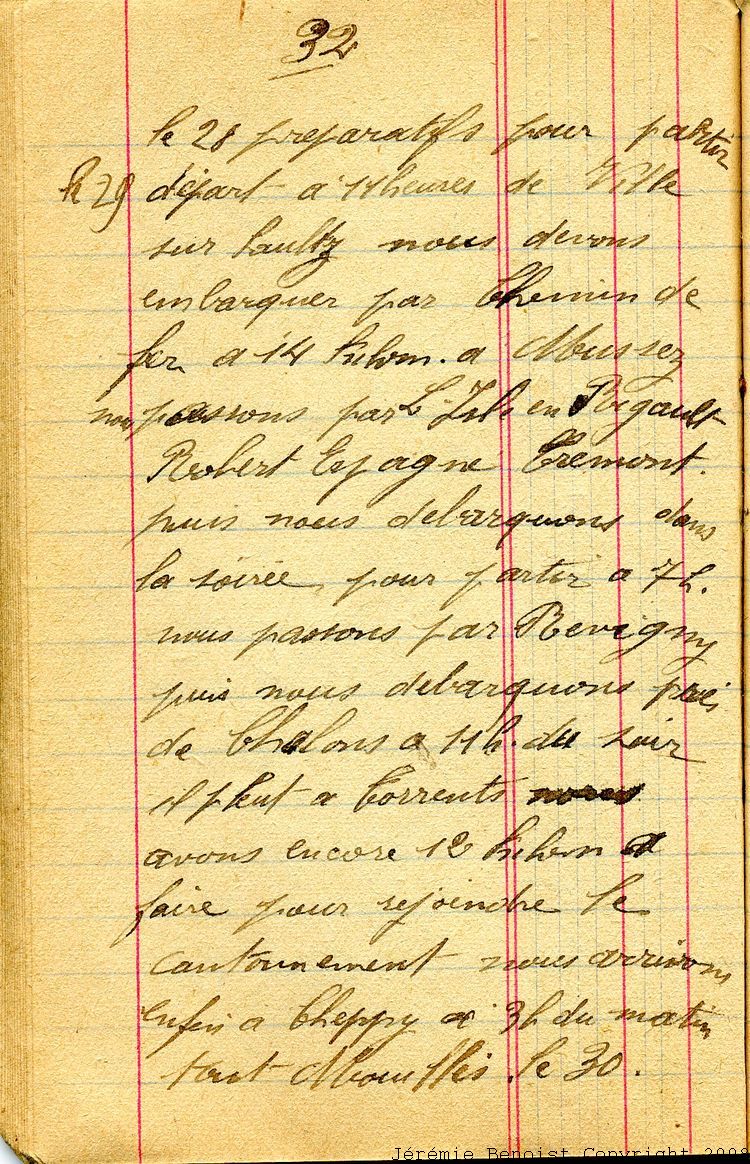 32
le 28 preparatifs pour partir
le 29 départ a 11 heures de Ville
sur Saultz nous devons
embarquer par Chemin de
fer a 14 kilom. a Mussey
nous passons par L'Isle en Rigault
Robert Espagne Tremont.
puis nous debarquons dans
la soirée, pour partir a 7h.
nous passons par Revigny
puis nous debarquons près
de Chalons a 11h. du soir
il pleut a Torrents nous
avons encore 12 kilom a
faire pour rejoindre le
cantonnement nous arrivons
enfin a Cheppy a 3h du matin
tout Mouillés. le 30.
Jérémie Benoist Copyright